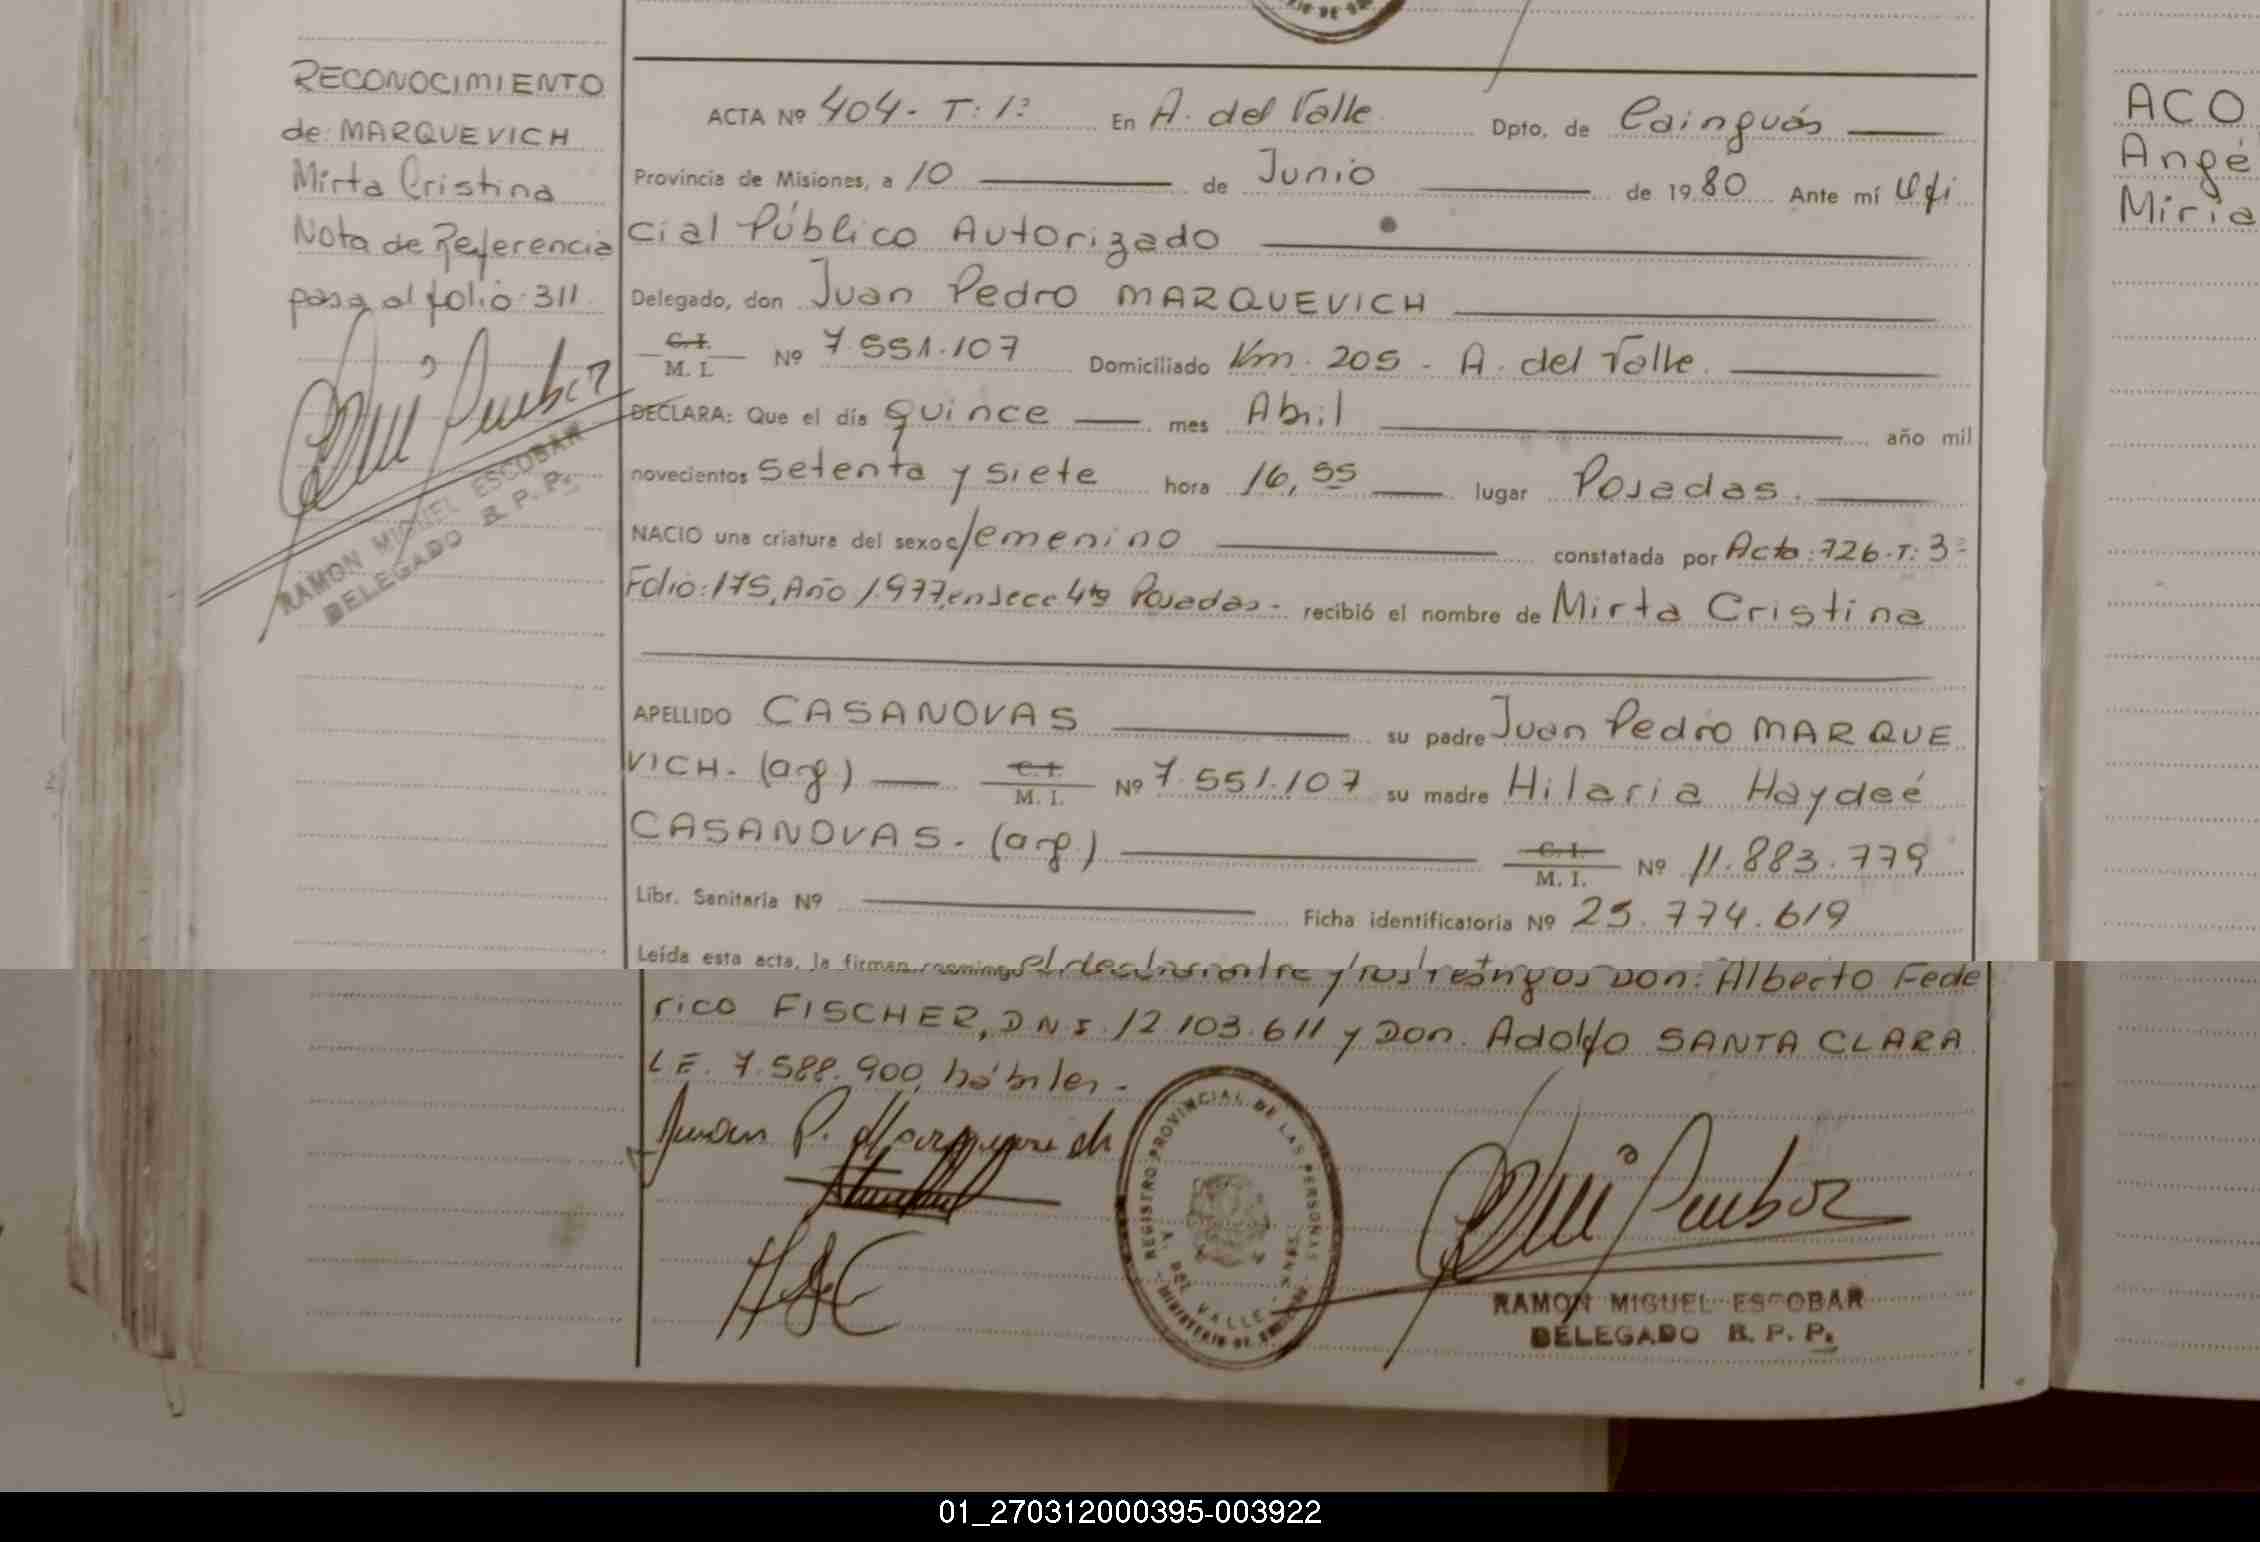 RIO DE
RECONOCIMIENTO
de: MARQUEVICH
Mirta Cristina
Nota de Referencia
pasa al folio: 311
RAMON MIGUEL ESCOBAR
DELEGADO R. P. P.
ACTA Nº 404 - T: 1º En A. del Valle Dpto. de Cainguás
Provincia de Misiones, a 10 de Junio de 1980 Ante mí Ofi
cial Público Autorizado
Delegado, don Juan Pedro MARQUEVICH
C.I. M. I. Nº 7.551.107 Domiciliado Km. 205 - A. del Valle.
DECLARA: Que el día quince mes Abril año mil
novecientos setenta y siete hora 16,55 lugar Posadas.
NACIO una criatura del sexo femenino constatada por Acta: 726-T: 3º
Folio: 175, Año 1.977, en Secc 4ta Posadas - recibió el nombre de Mirta Cristina
APELLIDO CASANOVAS su padre Juan Pedro MARQUE
VICH. (arg.) C.I. M. I. Nº 7.551.107 su madre Hilaria Haydeé
CASANOVAS. (arg.) C.I. M. I. Nº 11.883.779
Libr. Sanitaria Nº Ficha identificatoria Nº 25.774.619
Leída esta acta, la firman conmigo el declarante y los testigos Don: Alberto Fede
rico FISCHER, DNI. 12.103.611 y Don. Adolfo SANTA CLARA
LE. 7.588.900, hábiles -
Juan P. Marquevich
REGISTRO PROVINCIAL DE LAS PERSONAS
A. DEL VALLE - MNES.
MINISTERIO DE
RAMON MIGUEL ESCOBAR
DELEGADO R. P. P.
ACO
Angé
Miria
01_270312000395-003922